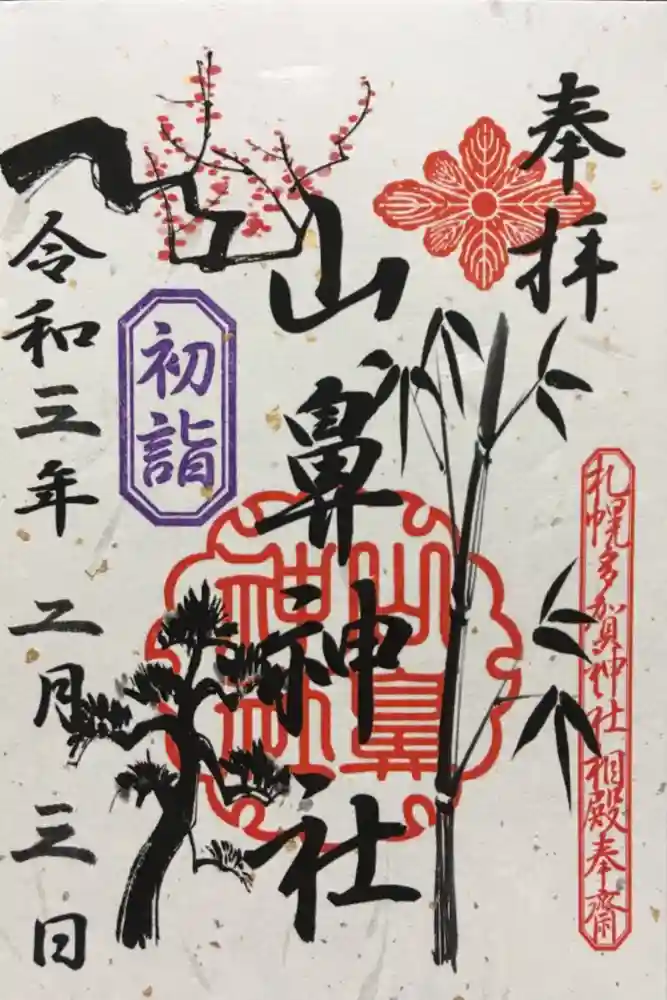 奉拝
札幌多賀神社相殿奉齋
山鼻神社
山鼻
神社
初詣
令和三年二月三日